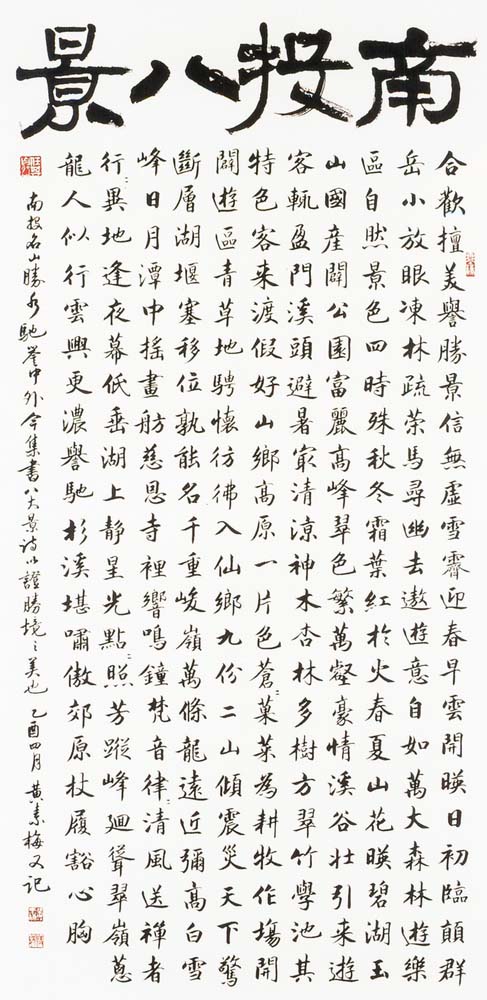 南投八景
合歡擅美譽勝景信無虛雪霽迎春早雲開暎日初臨顛群
岳小放眼凍林疏榮馬尋幽去遨遊意自如萬大森林遊樂
區自然景色四時殊秋冬霜葉紅於火春夏山花暎碧湖玉
山國産闢公園富麗高峰翠色繁萬壑豪情溪谷壯引来遊
客輒盈門溪頭避暑冣清涼神木杏林多樹方翠竹學池其
特色客来渡假好山鄉高原一片色蒼〻菓菜為耕牧作場開
闢遊區青草地騁懷彷彿入仙鄉九份二山傾震災天下驚
斷層湖堰塞移位孰能名千重峻嶺萬條龍遠近彌高白雪
峰日月潭中搖畫舫慈恩寺裡響鳴鐘梵音律〻清風送禪者
行〻異地逢夜幕低垂湖上靜星光點〻照芳蹤峰廻聳翠嶺蔥
龍人似行雲興更濃譽馳杉溪堪嘯傲郊原杖履豁心胸
南投名山勝水馳譽中外今集書八大景詩以證勝境之美也 乙酉四月 黃素梅又記